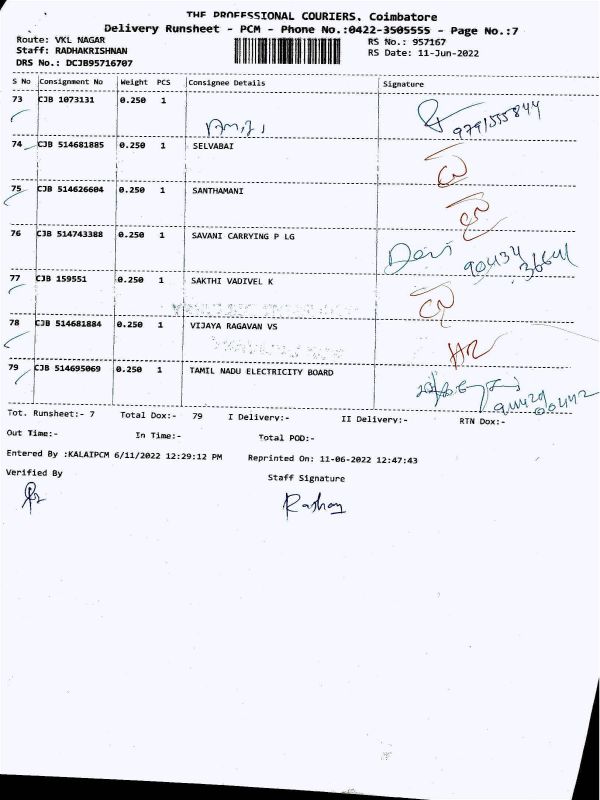 THE PROFESSIONAL COURIERS, Coimbatore
Delivery Runsheet - PCM - Phone No.:0422-3505555 - Page No.:7
Route: VKL NAGAR
RS No.: 957167
Staff: RADHAKRISHNAN
RS Date: 11-Jun-2022
DRS No.: DCJB95716707
S No Consignment No Weight PCS Consignee Details Signature
73 CJB 1073131 0.250 1
9791555844
74 CJB 514681885 0.250 1 SELVABAI
75 CJB 514626604 0.250 1 SANTHAMANI
76 CJB 514743388 0.250 1 SAVANI CARRYING P LG
Devi
77 CJB 159551 0.250 1 SAKTHI VADIVEL K
78 CJB 514681884 0.250 1 VIJAYA RAGAVAN VS
79 CJB 514695069 0.250 1 TAMIL NADU ELECTRICITY BOARD
Tot. Runsheet:- 7 Total Dox:- 79 I Delivery:- II Delivery:- RTN Dox:-
Out Time:- In Time:- Total POD:-
Entered By :KALAIPCM 6/11/2022 12:29:12 PM Reprinted On: 11-06-2022 12:47:43
Verified By Staff Signature